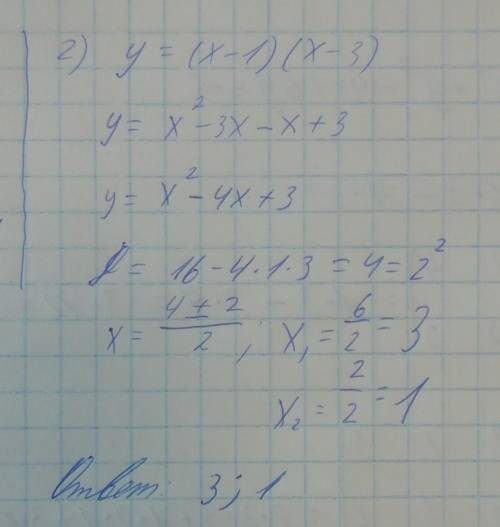 2) y = (x-1)(x-3)
y = x²-3x-x+3
y = x²-4x+3
D = 16-4·1·3 = 4 = 2²
x = (4±2)/2; x₁ = 6/2 = 3
x₂ = 2/2 = 1
Ответ: 3; 1